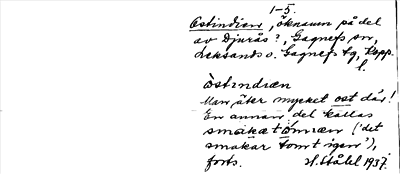 1-5.
Ostindien, öknamn på del
av Djurås?, Gagnefs sn,
Leksands o. Gagnefs tg, Kopp.
l.
östindiæn
Man äter mycket ost där!
En annan del kallas
smakætómiæn ('det
smakar tomt igen'),
forts. H. Ståhl 1937.